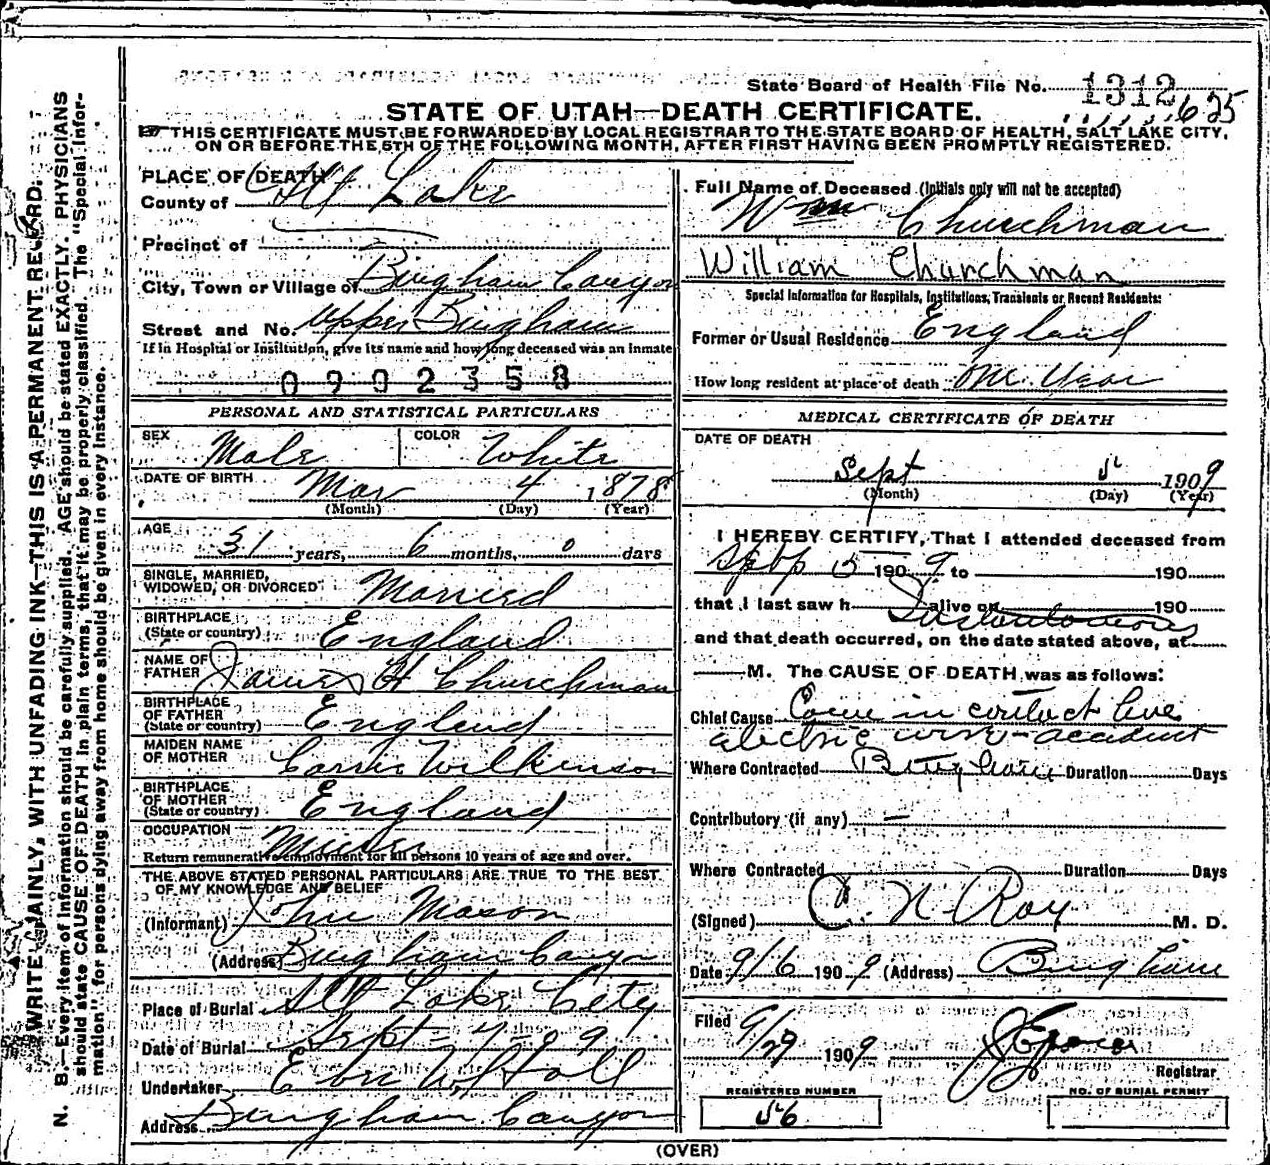 State Board of Health File No. 1312 625
STATE OF UTAH—DEATH CERTIFICATE.
THIS CERTIFICATE MUST BE FORWARDED BY LOCAL REGISTRAR TO THE STATE BOARD OF HEALTH, SALT LAKE CITY,
ON OR BEFORE THE 5TH OF THE FOLLOWING MONTH, AFTER FIRST HAVING BEEN PROMPTLY REGISTERED.
WRITE PLAINLY, WITH UNFADING INK—THIS IS A PERMANENT RECORD.
N. B.—Every item of information should be carefully supplied. AGE should be stated EXACTLY. PHYSICIANS
should state CAUSE OF DEATH in plain terms, that it may be properly classified. The "Special Infor-
mation" for persons dying away from home should be given in every instance.
PLACE OF DEATH
County of Salt Lake
Precinct of
City, Town or Village of Bingham Canyon
Street and No. Upper Bingham
If in Hospital or Institution, give its name and how long deceased was an inmate
0902358
PERSONAL AND STATISTICAL PARTICULARS
SEX Male COLOR White
DATE OF BIRTH Mar 4 1878
(Month) (Day) (Year)
AGE 31 years, 6 months, 0 days
SINGLE, MARRIED,
WIDOWED, OR DIVORCED Married
BIRTHPLACE
(State or country) England
NAME OF
FATHER James H Churchman
BIRTHPLACE
OF FATHER
(State or country) England
MAIDEN NAME
OF MOTHER Carrie Wilkinson
BIRTHPLACE
OF MOTHER
(State or country) England
OCCUPATION Miner
Return remunerative employment for all persons 10 years of age and over.
THE ABOVE STATED PERSONAL PARTICULARS ARE TRUE TO THE BEST
OF MY KNOWLEDGE AND BELIEF
(Informant) John Mason
(Address) Bingham Canyon
Place of Burial Salt Lake City
Date of Burial Sept - 7 - 09
Undertaker
Address Bingham Canyon
Full Name of Deceased (Initials only will not be accepted)
Wm Churchman
William Churchman
Special Information for Hospitals, Institutions, Transients or Recent Residents:
Former or Usual Residence England
How long resident at place of death One Year
MEDICAL CERTIFICATE OF DEATH
DATE OF DEATH
Sept 5 1909
(Month) (Day) (Year)
I HEREBY CERTIFY, That I attended deceased from
Sept 5 1909 to 190
that I last saw h alive on 190
Instantaneous
and that death occurred, on the date stated above, at
M. The CAUSE OF DEATH was as follows:
Chief Cause Came in contact live
electric wire - accident
Where Contracted Bingham Duration Days
Contributory (if any) —
Where Contracted Duration Days
(Signed) C. N. Ray M. D.
Date 9/6 1909 (Address) Bingham
Filed 9/29 1909
Registrar
REGISTERED NUMBER
56
NO. OF BURIAL PERMIT
(OVER)